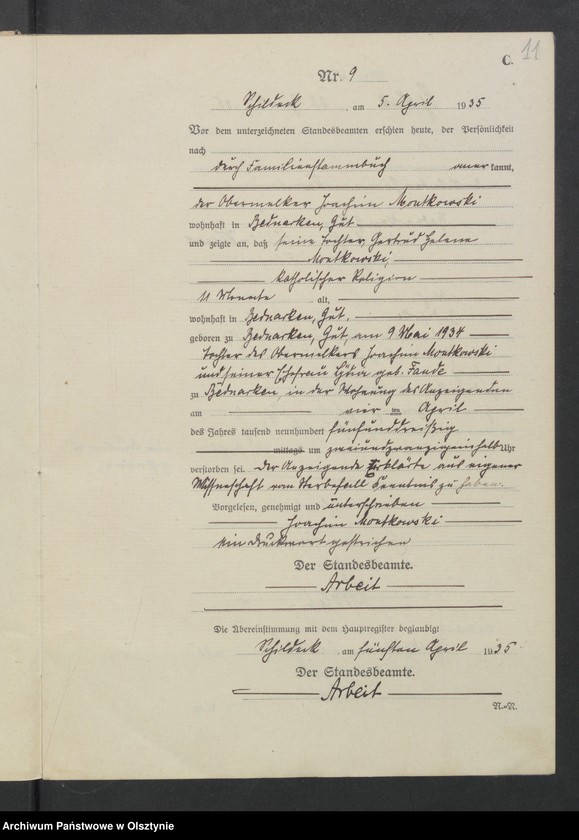 C. 11
Nr. 9
Schildeck, am 5. April 1935
Vor dem unterzeichneten Standesbeamten erschien heute, der Persönlichkeit
nach
durch Familienstammbuch anerkannt,
der Obermelker Joachim Montkowski
wohnhaft in Bednarken, Gut
und zeigte an, daß seine Tochter Gertrud Helene
Montkowski,
katholischer Religion
11 Monate alt,
wohnhaft in Bednarken, Gut,
geboren zu Bednarken, Gut, am 9 Mai 1934
Tochter des Obermelkers Joachim Montkowski
und seiner Ehefrau geb.
zu Bednarken, in der Wohnung des Anzeigenden
am vier ten April
des Jahres tausend neunhundert fünfunddreißig
mittags um zweiundzwanzigeinhalb Uhr
verstorben sei. Der Anzeigende erklärte aus eigener
Wissenschaft vom Sterbefall Kenntnis zu haben.
Vorgelesen, genehmigt und unterschrieben
Joachim Montkowski
ein Druckwort gestrichen
Der Standesbeamte.
Arbeit
Die Übereinstimmung mit dem Hauptregister beglaubigt
Schildeck, am fünften April 1935
Der Standesbeamte.
Arbeit
Archiwum Państwowe w Olsztynie